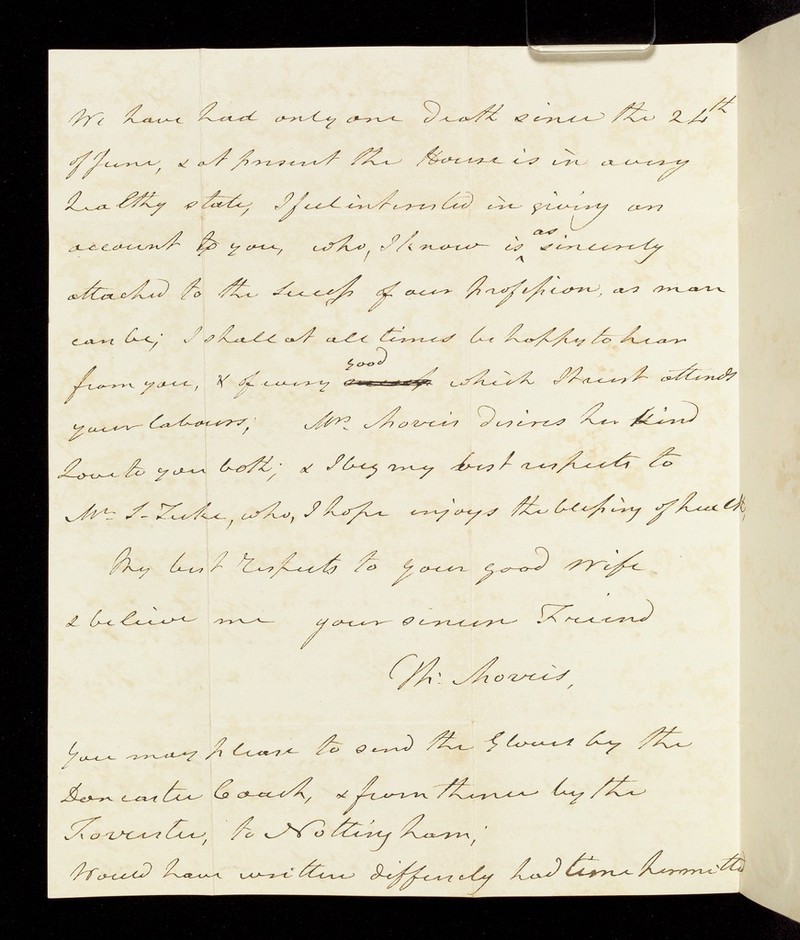 We have had only one Death since the 24th
of June, & at present the House is in a very
healthy state, I feel interested in giving an
account to you, who, I know is as sincerely
attached to the success of our profession, as man
can be; I shall at all times be happy to hear
from you, & of every good which I trust attends
your labours; Mrs. Morris desires her kind
Love to you both; & I beg my best respects to
Mr. S. Tuke, who, I hope enjoys the blessing of health,
My best respects to your good wife
& believe me your sincere Friend
Th: Morris,
You may please to send the Gloves by the
Doncaster Coach, & from thence by the
to Nottingham;
Would have written differently had time permitted